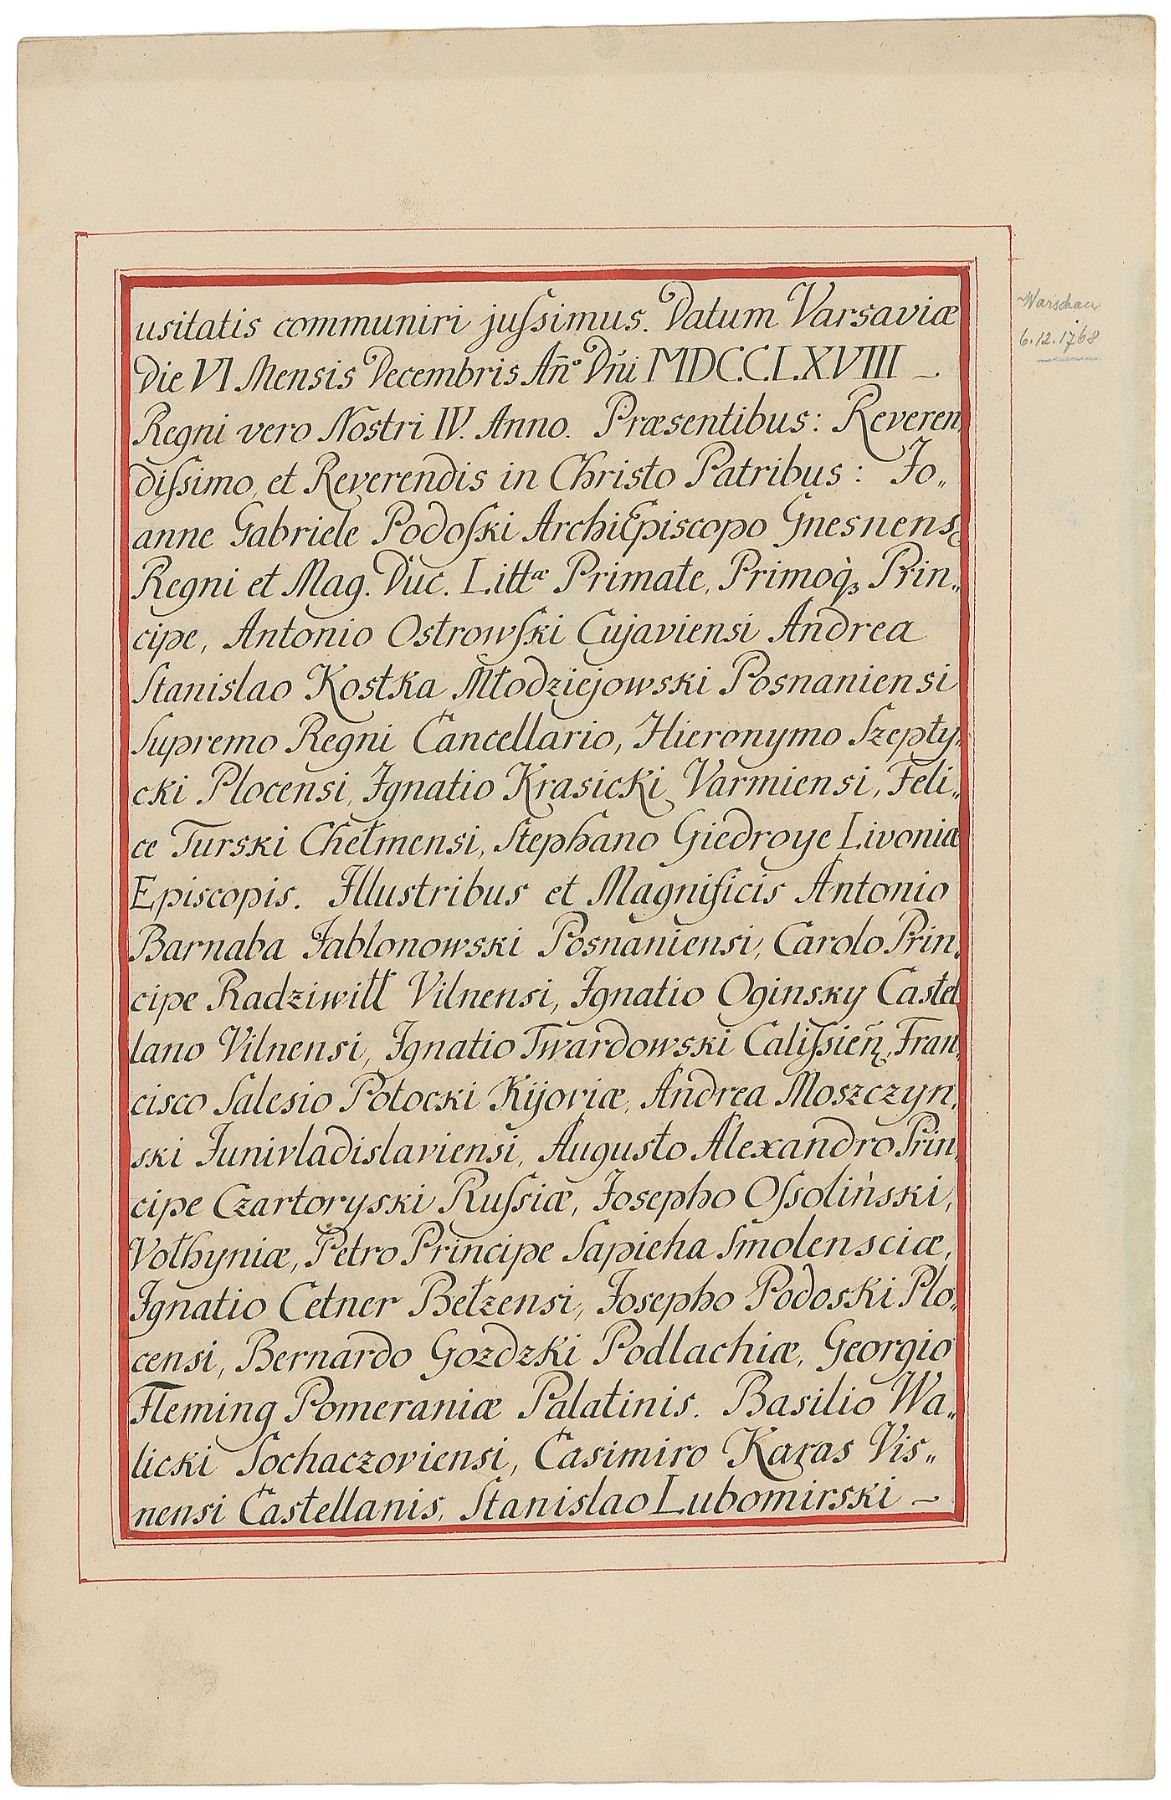 usitatis communiri juſsimus. Datum Varsaviæ
Die VI Mensis Decembris Añ° Dñi MDCCLXVIII _.
Regni vero Nostri IV. Anno. Præsentibus: Reveren,
diſsimo, et Reverendis in Christo Patribus: Jo„
anne Gabriele Podoſki ArchiEpiscopo Gnesnens
Regni et Mag. Duc. Littæ Primate, Primoq̀ꝫ Prin„
cipe, Antonio Ostrowſki Cujaviensi Andrea
Stanislao Kostka Młodziejowski Posnaniensi
Supremo Regni Cancellario, Hieronymo Szepty„
cki Plocensi, Ignatio Krasicki Varmiensi, Feli„
ce Turski Chełmensi, Stephano Giedroye Livoniæ
Episcopis. Illustribus et Magnificis Antonio
Barnaba Jablonowski Posnaniensi, Carolo Prin„
cipe Radziwiłł Vilnensi, Ignatio Oginsky Castel
lano Vilnensi, Ignatio Twardowski Caliſsień, Fran„
cisco Salesio Potocki Kijoviæ, Andrea Moszczyn„
ski Junivladislaviensi, Augusto Alexandro Prin„
cipe Czartoryski Ruſsiæ, Josepho Oſsoliński,
Vołhyniæ, Petro Principe Sapieha Smolensciæ,
Ignatio Cetner Bełzensi, Josepho Podoski Plo„
censi, Bernardo Gozdzki Podlachiæ, Georgio
Fleming Pomeraniæ Palatinis. Basilio Wa„
licki Sochaczoviensi, Casimiro Karas Vis„
nensi Castellanis, Stanislao Lubomirski _
Warschau
6.12.1768